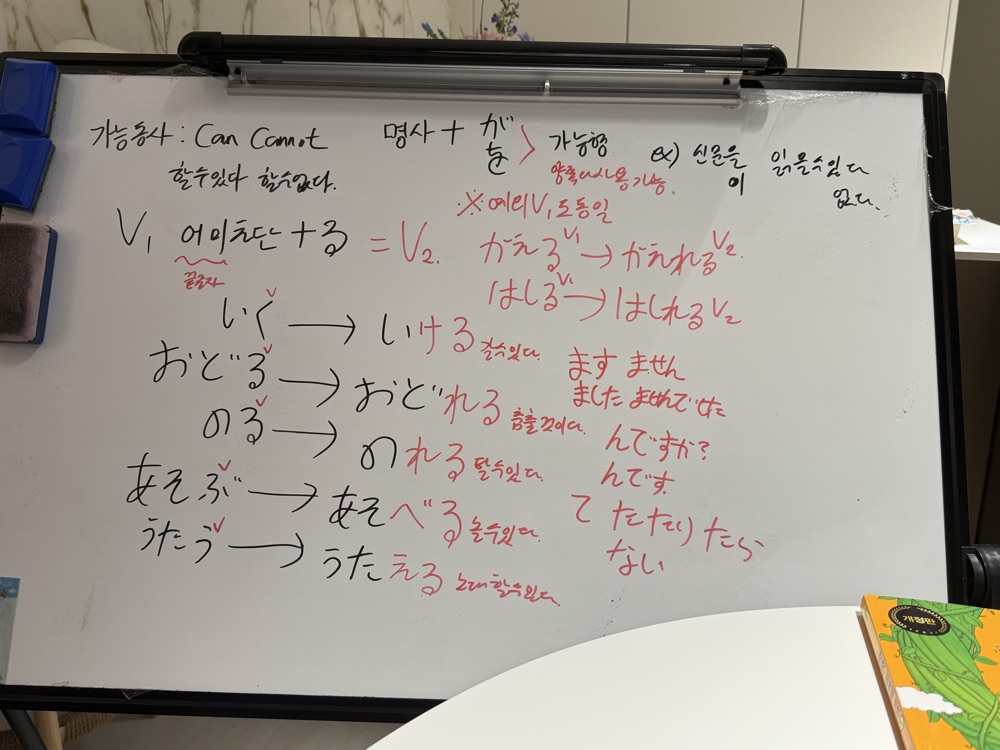 가능동사 : Can Cannot
할수있다 할수없다.
명사 + が
を
가능형
양쪽다사용가능.
ex) 신문을 읽을수있다
이 없다.
※ 예외V₁도동일
V₁ 어미え단 + る = V₂.
끝글자
がえるV₁ → かえれるV₂.
はしるV₁ → はしれるV₂
いく → いける 갈수있다.
おどる → おどれる
のる → のれる 탈수있다.
あそぶ → あそべる 놀수있다.
うたう → うたえる 노래할수있다.
ます ません
ました ませんでした
んですか?
んです.
て た たり たら
ない
개정판